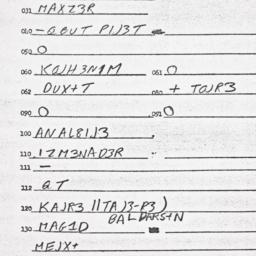 031 MAXZ3R
040 -QOUT PIJ3T
050 O
060 KOJH3N1M 061 O
062 DUX+T 080 + TOJR3
090 O 092 O
100 ANAL8IJ3
110 IZM3NAD3R -
111 -
112 QT
120 KAJR3 //TAJ3-P3)
130 MAG1D
MEJX+